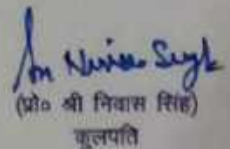 (प्रो० श्री निवास सिंह)
कुलपति